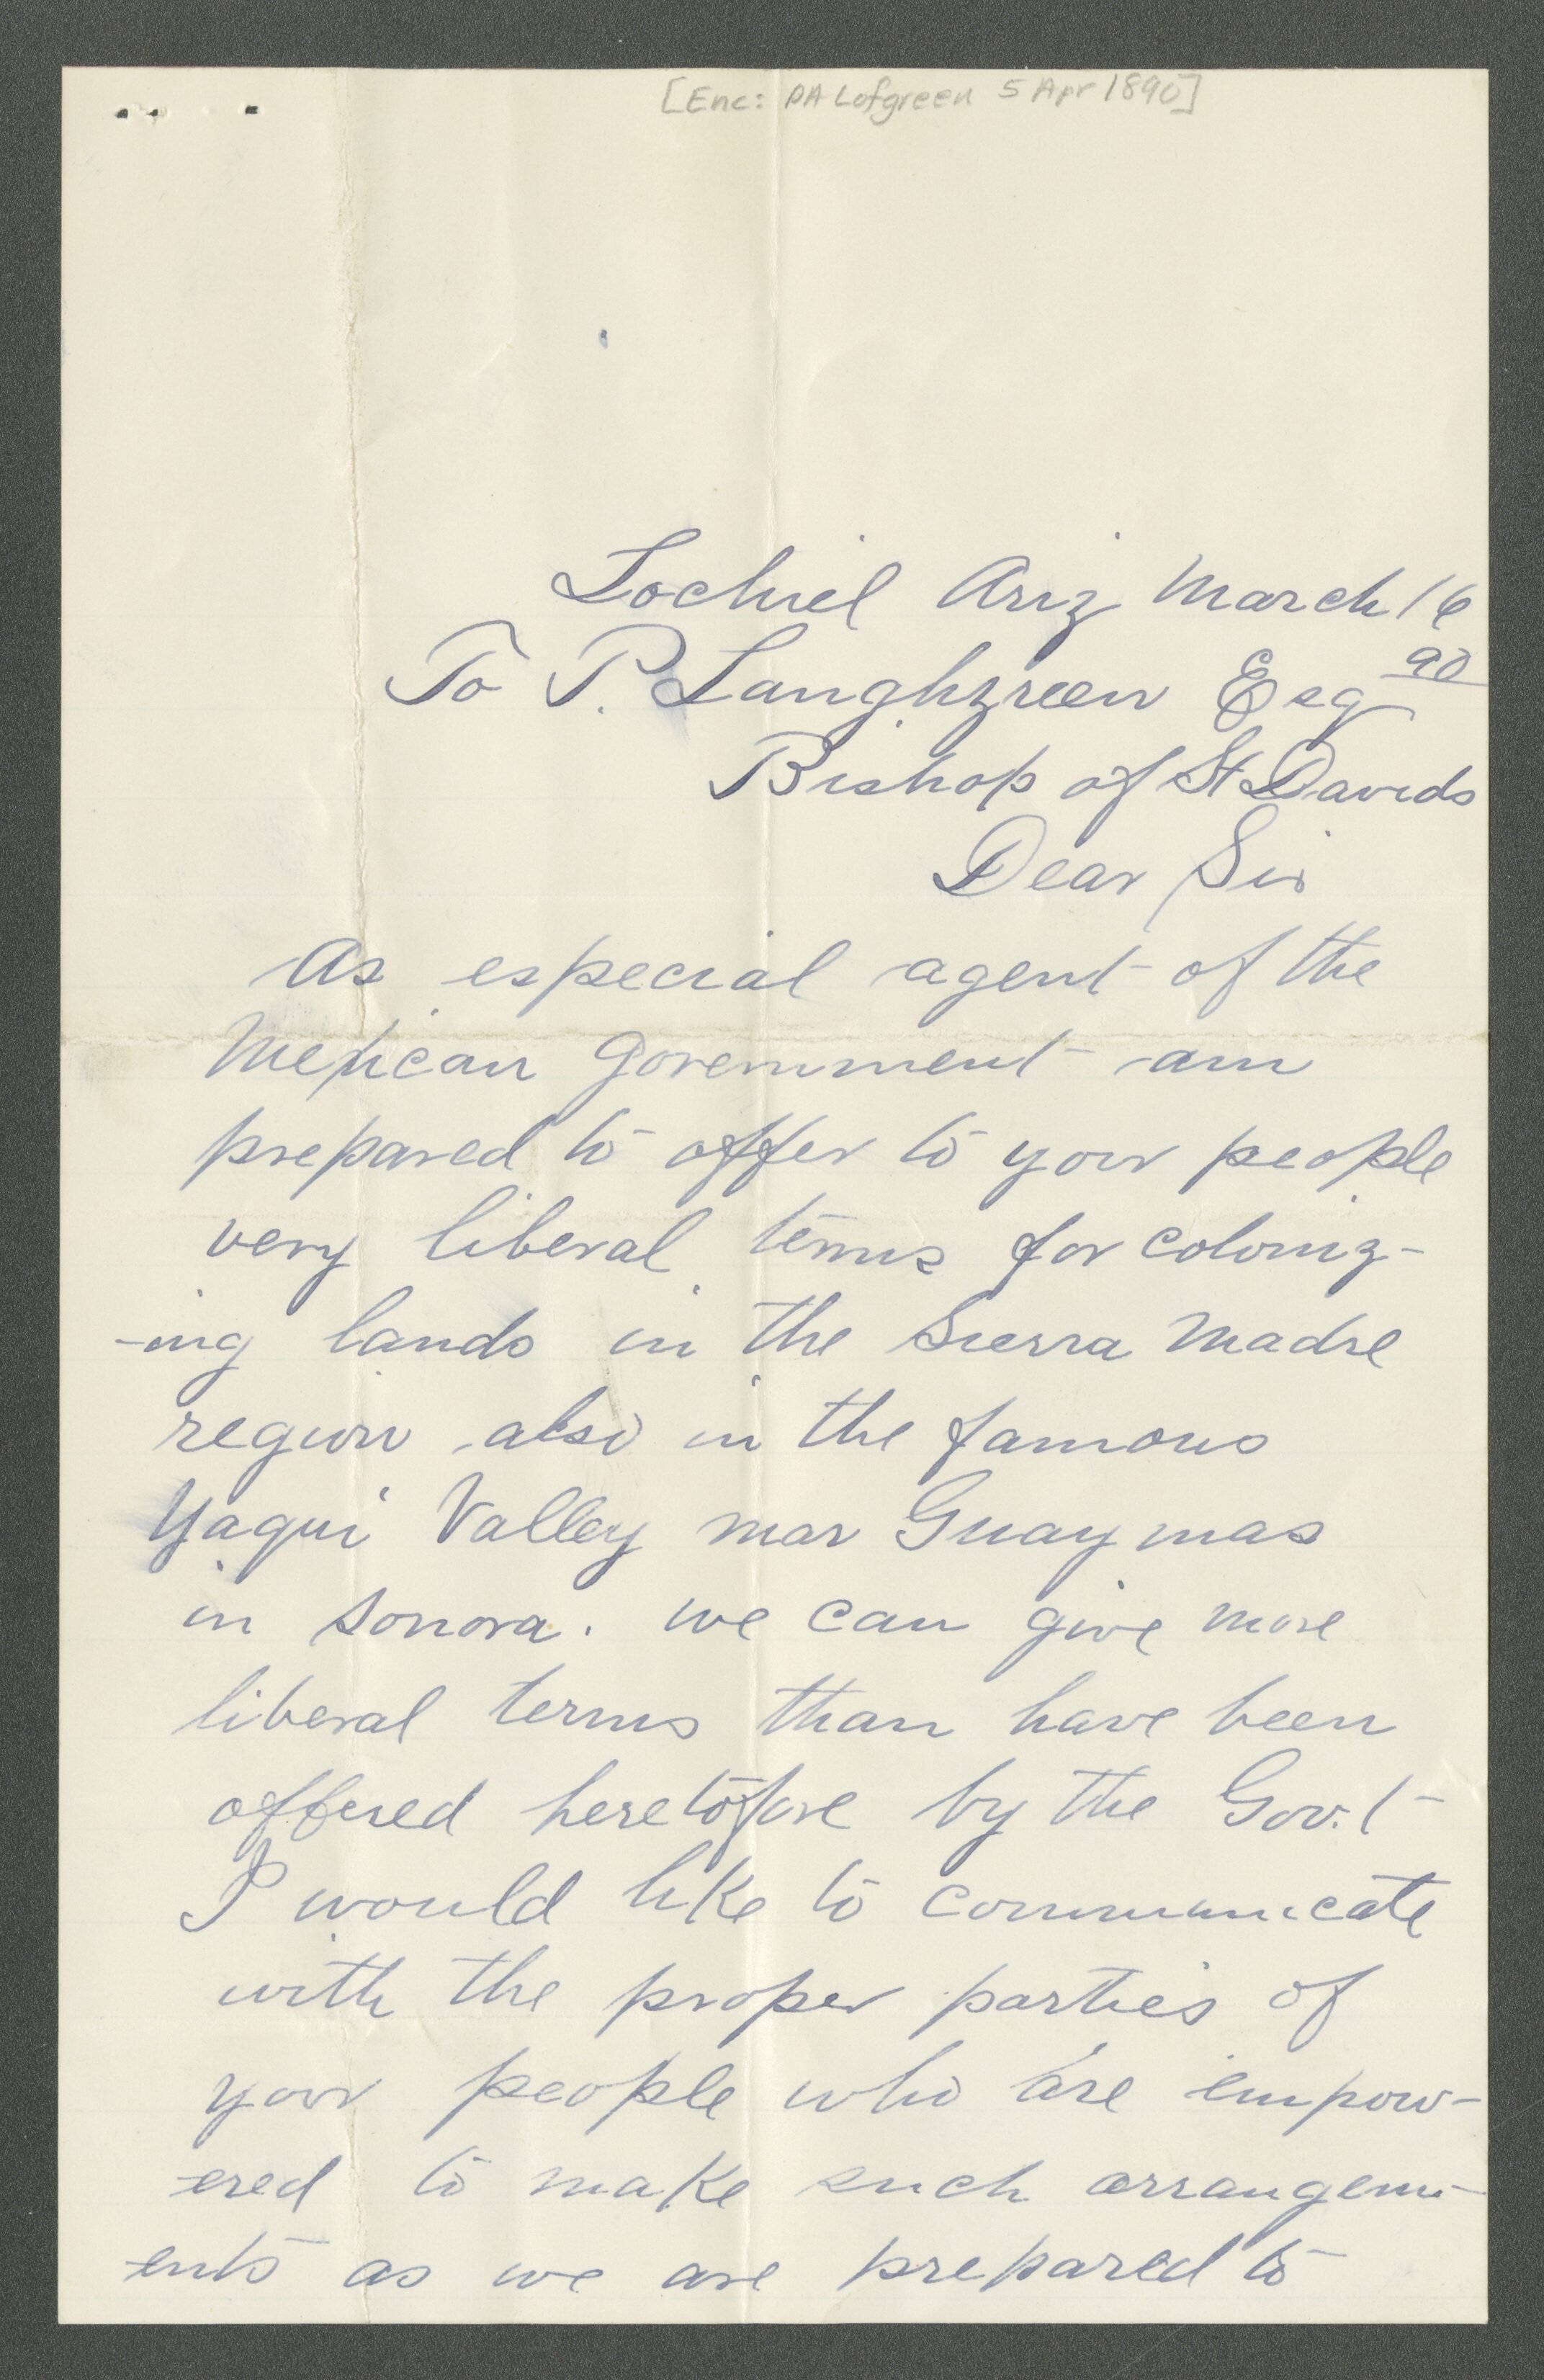 [Enc: PA Lofgreen 5 Apr 1890]
Lochiel Ariz March 16
90
To P. Langhgreen Esq
Bishop of St Davids
Dear Sir
As especial agent of the
Mexican Government am
prepared to offer to your people
very liberal terms for coloniz-
-ing lands in the Sierra Madre
region also in the famous
Yaqui Valley near Guaymas
in Sonora. we can give more
liberal terms than have been
offered heretofore by the Gov.t
I would like to communicate
with the proper parties of
your people who are empow-
-ered to make such arrangem-
-ents as we are prepared to